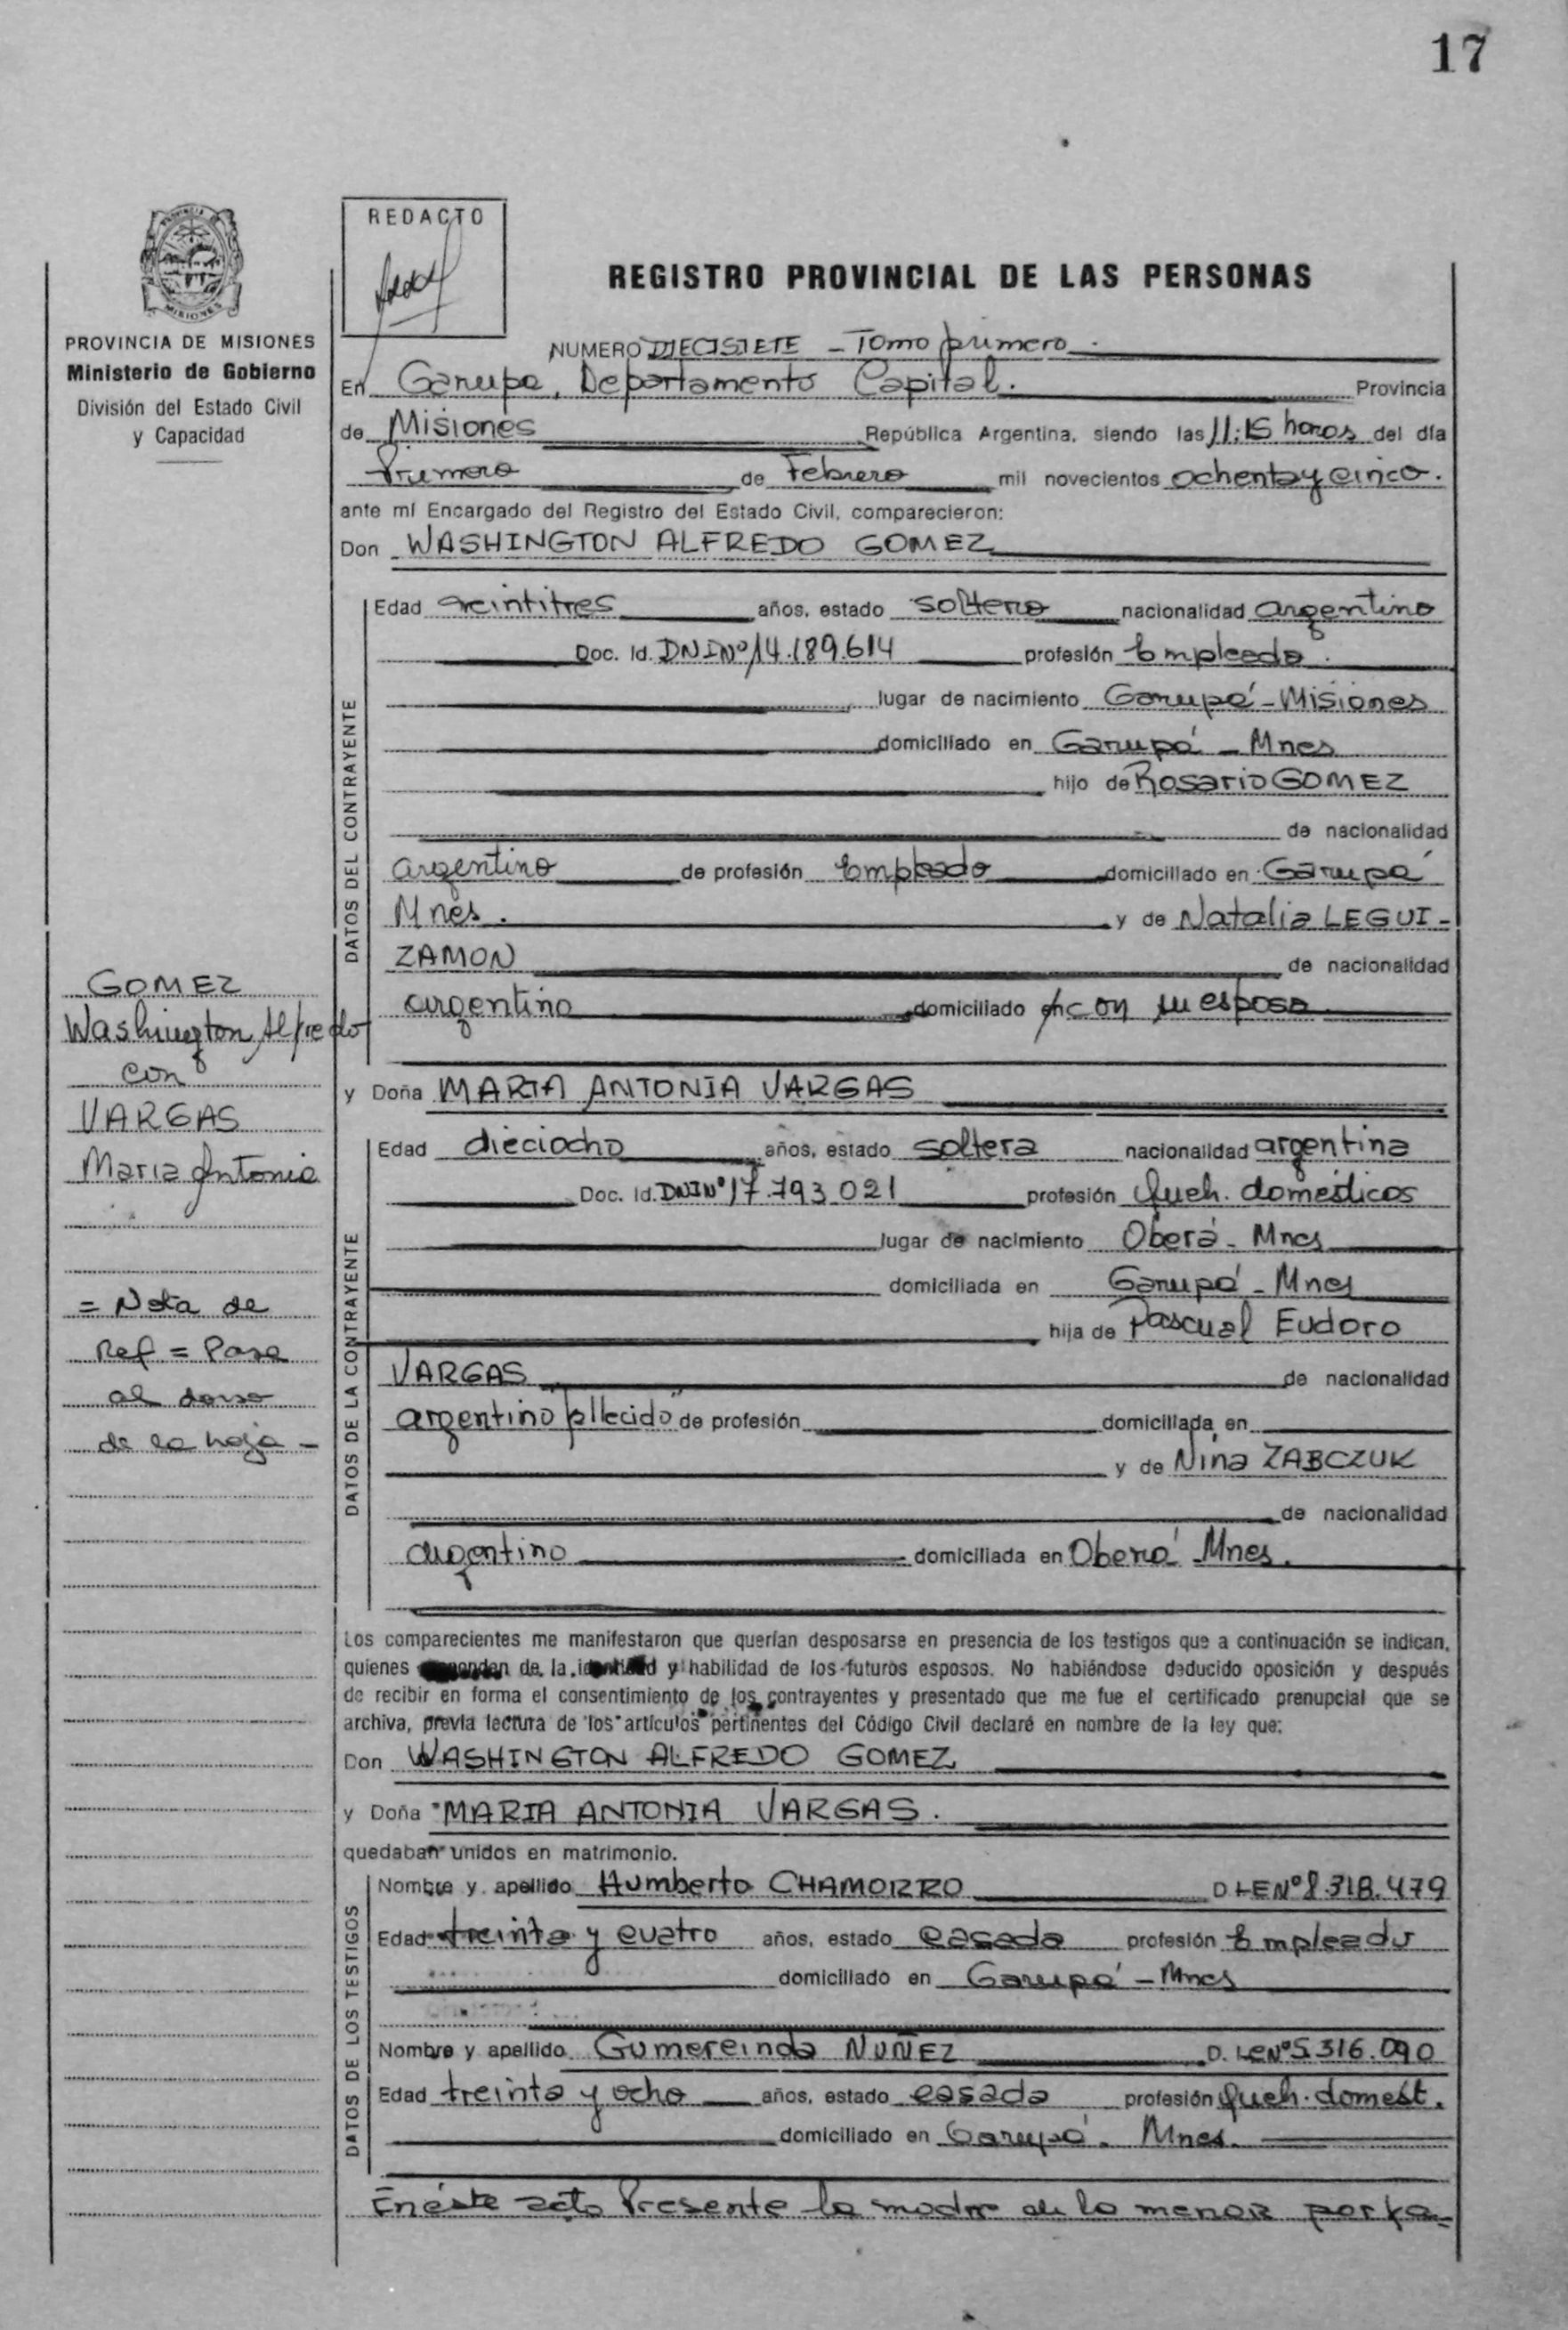 17
REDACTO
PROVINCIA DE MISIONES
PROVINCIA DE MISIONES
Ministerio de Gobierno
División del Estado Civil
y Capacidad
REGISTRO PROVINCIAL DE LAS PERSONAS
NUMERO DIECISIETE - Tomo primero.
En Garupa, Departamento Capital. Provincia
de Misiones República Argentina, siendo las 11:15 horas del día
Primero de Febrero mil novecientos ochenta y cinco.
ante mí Encargado del Registro del Estado Civil, comparecieron:
Don WASHINGTON ALFREDO GOMEZ
DATOS DEL CONTRAYENTE
Edad veintitres años, estado soltero nacionalidad argentino
Doc. Id. DNI Nº 14.189.614 profesión Empleado.
lugar de nacimiento Garupá - Misiones
domiciliado en Garupá - Mnes
hijo de Rosario GOMEZ
de nacionalidad
argentino de profesión Empleado domiciliado en Garupá
Mnes. y de Natalia LEGUI-
ZAMON de nacionalidad
argentino domiciliado en con su esposo
y Doña MARIA ANTONIA VARGAS
DATOS DE LA CONTRAYENTE
Edad dieciocho años, estado soltera nacionalidad argentina
Doc. Id. DNI Nº 17.793.021 profesión Queh. domésticos
lugar de nacimiento Oberá - Mnes
domiciliada en Garupá - Mnes
hija de Pascual Eudoro
VARGAS de nacionalidad
argentino "fllecido" de profesión domiciliada en
y de Nina ZABCZUK
de nacionalidad
argentino domiciliada en Oberá Mnes.
Los comparecientes me manifestaron que querían desposarse en presencia de los testigos que a continuación se indican,
quienes responden de la identidad y habilidad de los futuros esposos. No habiéndose deducido oposición y después
de recibir en forma el consentimiento de los contrayentes y presentado que me fue el certificado prenupcial que se
archiva, previa lectura de los artículos pertinentes del Código Civil declaré en nombre de la ley que:
Don WASHINGTON ALFREDO GOMEZ
y Doña MARIA ANTONIA VARGAS.
quedaban unidos en matrimonio.
DATOS DE LOS TESTIGOS
Nombre y apellido Humberto CHAMORRO D. LE Nº 8.318.479
Edad treinta y cuatro años, estado casado profesión Empleado
domiciliado en Garupá - Mnes
Nombre y apellido Gumercinda NUÑEZ D. LE Nº 5.316.090
Edad treinta y ocho años, estado casada profesión Queh. domést.
domiciliado en Garupá. Mnes.
En éste acto Presente la madre de la menor por fa-
GOMEZ
Washington Alfredo
con
VARGAS
Maria Antonia
= Nota de
Ref = Pasa
al dorso
de la hoja -